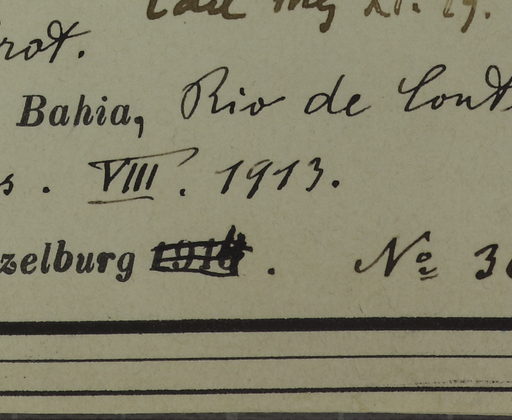 rot.
Bahia, Rio de Cont
s. VIII. 1913.
zelburg 1913. Nº 3